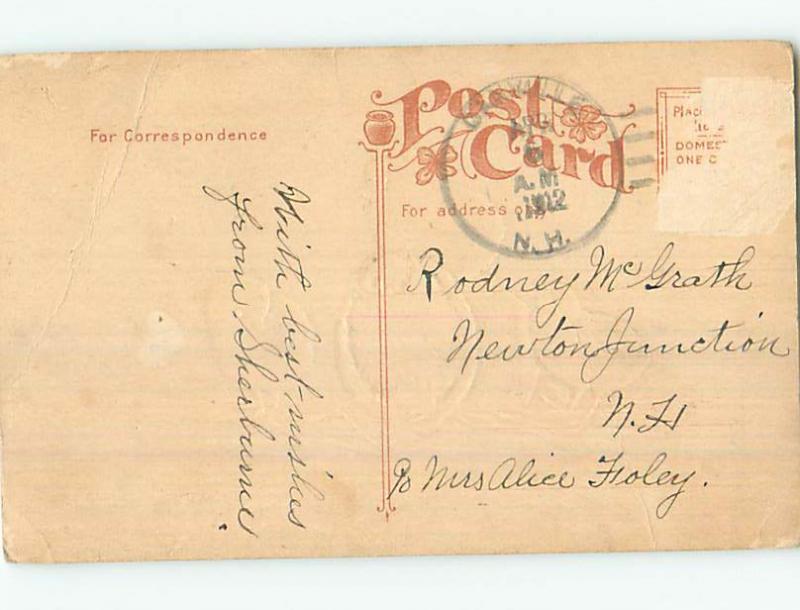 Post
Card
For Correspondence
For address only
DOMES
ONE C
A.M
1912
N. H.
With best wishes
from Sherburne
Rodney McGrath
Newton Junction
N.H
c/o Mrs Alice Foley.